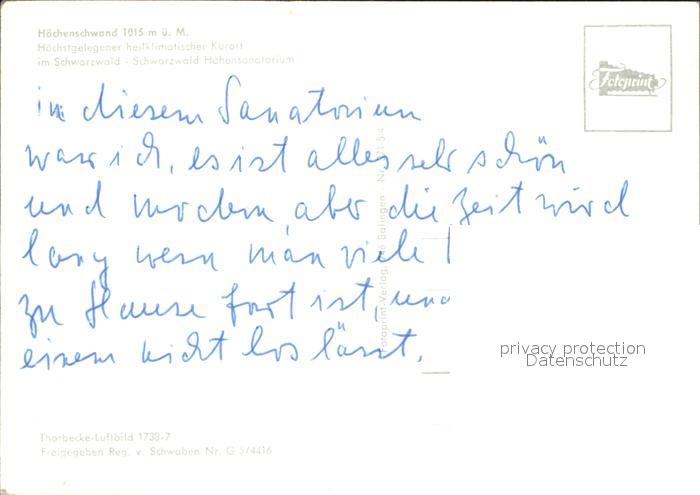 Höchenschwand 1015 m ü. M.
Höchstgelegener heilklimatischer Kurort
im Schwarzwald - Schwarzwald Höhensanatorium
Fotoprint
in diesem Sanatorium
war ich, es ist alles sehr schön
und modern, aber die Zeit wird
lang wenn man viele
zu Hause fort ist, und
einem nicht los lässt.
privacy protection
Datenschutz
Thorbecke-Luftbild 1738-7
Freigegeben Reg. v. Schwaben Nr. G 5/4416